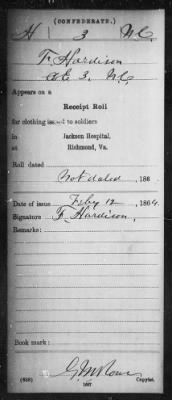 (CONFEDERATE.)
H 3 N.C.
F. Hardison
Co E 3, N.C.
Appears on a
Receipt Roll
for clothing issued to soldiers
in Jackson Hospital,
at Richmond, Va.
Roll dated
Not dated, 186
Date of issue Feby 12, 1864.
Signature F. Hardison,
Remarks:
Book mark:
Copyist.